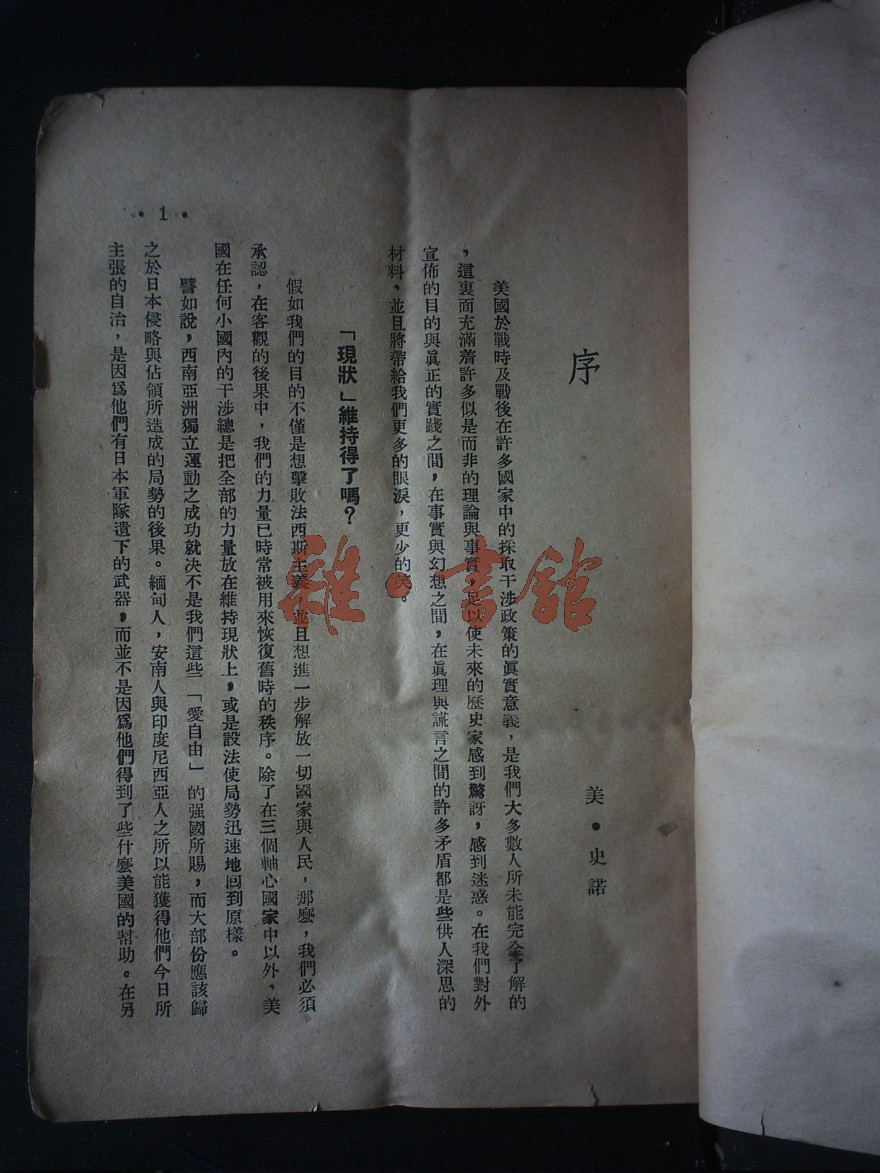 序
美•史諾
美國於戰時及戰後在許多國家中的採取干涉政策的眞實意義，是我們大多數人所未能完全了解的
，這裏面充滿着許多似是而非的理論與事實，足以使未來的歷史家感到驚訝，感到迷惑。在我們對外
宣佈的目的與眞正的實踐之間，在事實與幻想之間，在眞理與謊言之間的許多矛盾都是些供人深思的
材料，並且將帶給我們更多的眼淚，更少的笑。
「現狀」維持得了嗎？
假如我們的目的不僅是想擊敗法西斯主義，並且想進一步解放一切國家與人民，那麼，我們必須
承認，在客觀的後果中，我們的力量已時常被用來恢復舊時的秩序。除了在三個軸心國家中以外，美
國在任何小國內的干涉總是把全部的力量放在維持現狀上，或是設法使局勢迅速地回到原樣。
譬如說，西南亞洲獨立運動之成功就决不是我們這些「愛自由」的强國所賜，而大部份應該歸
之於日本侵略與佔領所造成的局勢的後果。緬甸人，安南人與印度尼西亞人之所以能獲得他們今日所
主張的自治，是因爲他們有日本軍隊遺下的武器，而並不是因爲他們得到了些什麼美國的幫助。在另
•1•
雜•書館